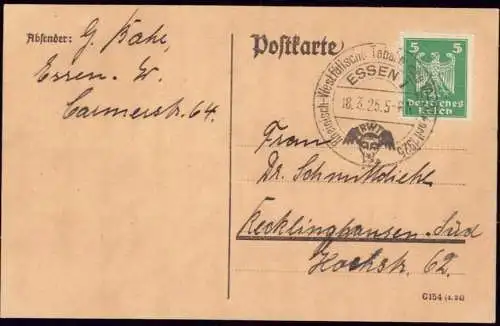 Absender: G. Bahr,
Essen-W.
Carmerstr. 64.
Postkarte
Rheinisch-Westfälische Tabak
ESSEN
18.3.25.5-
1925
RWT
5 5
Deutsches
Reich
Frau
Dr. Schmittdiehl
Recklinghausen-Süd
Hochstr. 62.
C154 (4. 24)